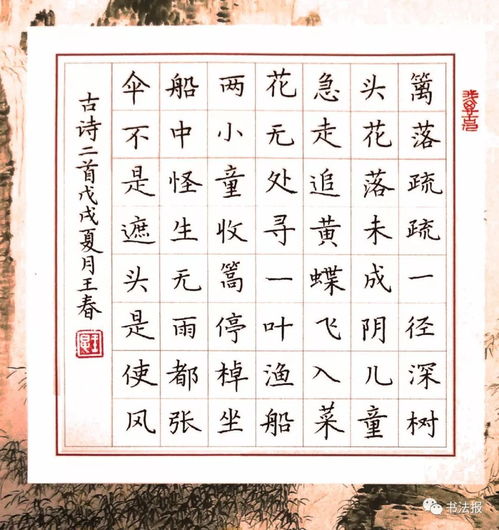 篱落疏疏一径深树
头花落未成阴儿童
急走追黄蝶飞入菜
花无处寻一叶渔船
两小童收篙停棹坐
船中怪生无雨都张
伞不是遮头是使风
古诗二首戊戌夏月王春
书法报